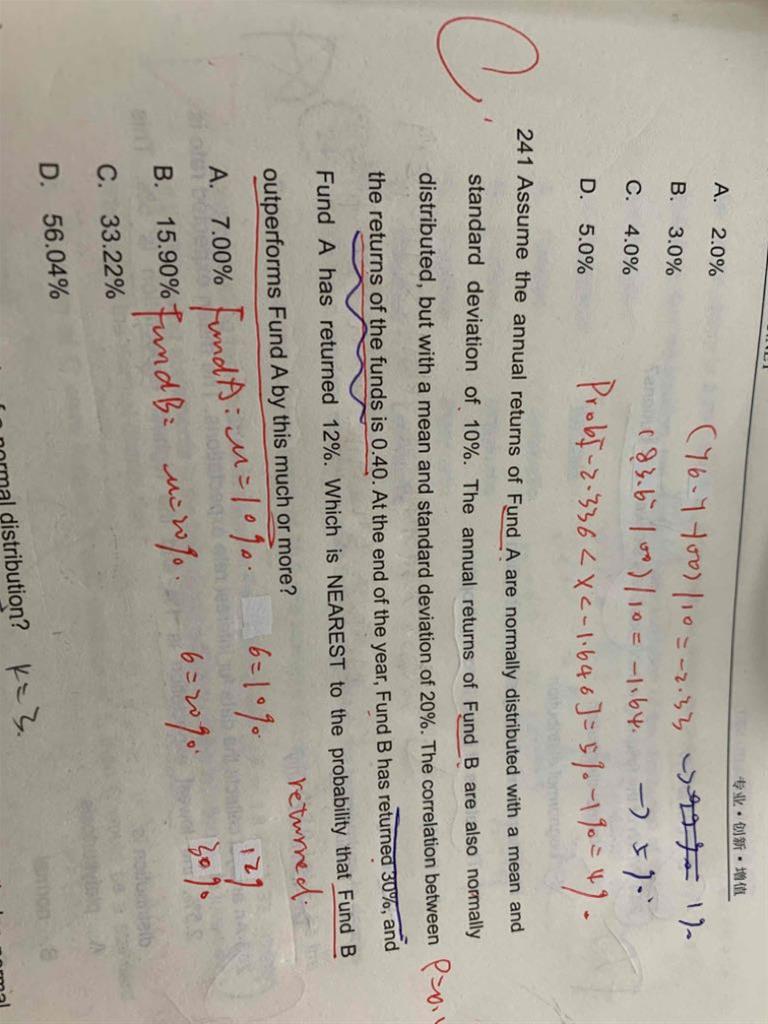 专业·创新·增值
A. 2.0%
B. 3.0%
C. 4.0%
D. 5.0%
(76.7-100)/10=-2.33 → 1%
(83.6-100)/10=-1.64. → 5%.
Prob[-2.336<X<-1.646]=5%-1%=4%.
C.
241 Assume the annual returns of Fund A are normally distributed with a mean and
standard deviation of 10%. The annual returns of Fund B are also normally
distributed, but with a mean and standard deviation of 20%. The correlation between
the returns of the funds is 0.40. At the end of the year, Fund B has returned 30%, and
Fund A has returned 12%. Which is NEAREST to the probability that Fund B
outperforms Fund A by this much or more?
returned.
A. 7.00%
B. 15.90%
C. 33.22%
D. 56.04%
FundA: μ=10%. 6=10% 12%
FundB: μ=20%. 6=20%. 30%
normal distribution? k=3.